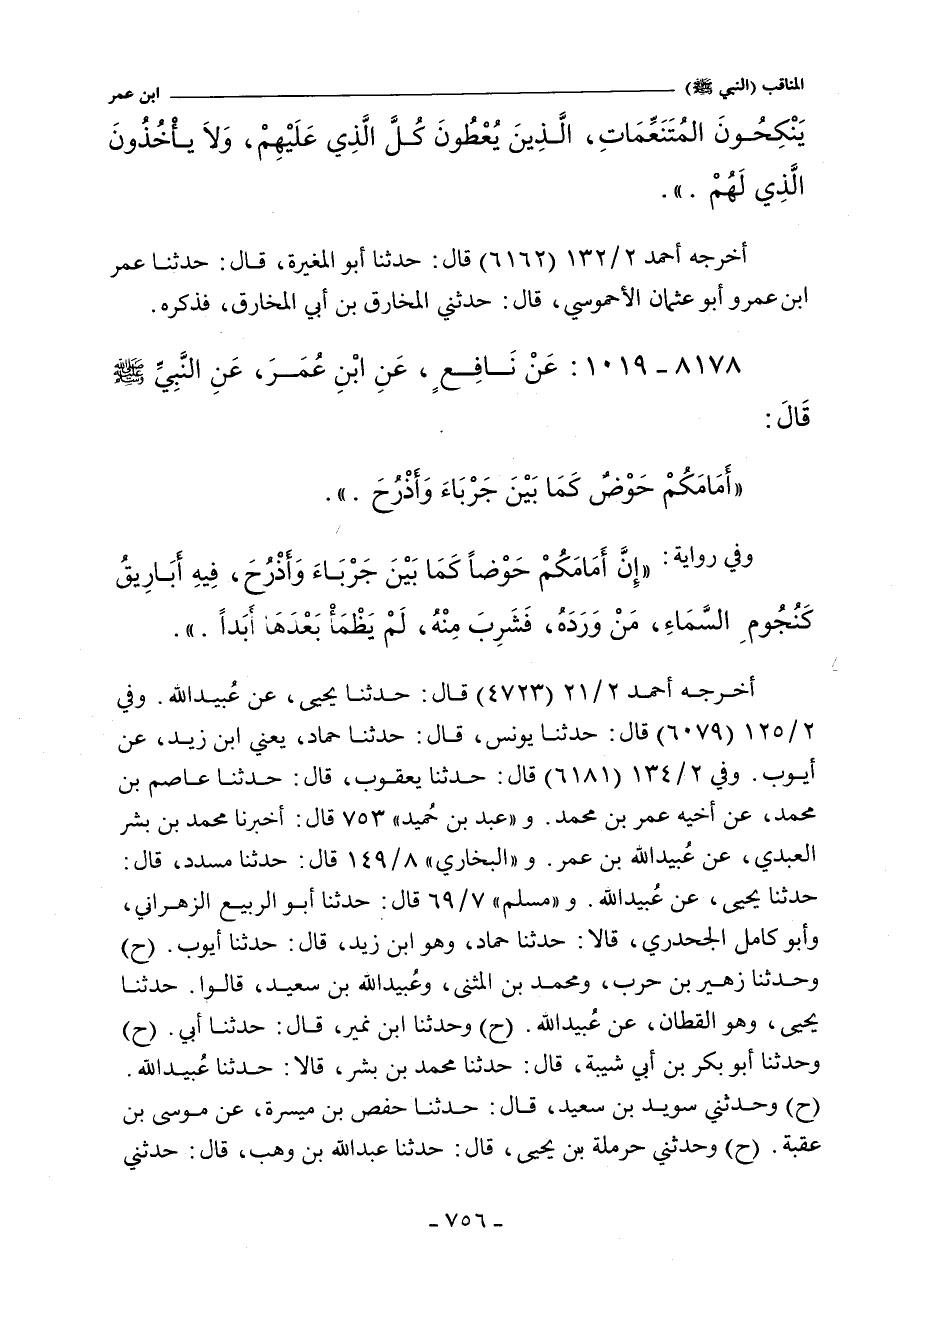 المناقب (النبي ﷺ) ابن عمر
يَنْكِحُونَ المُتَنَعِّمَاتِ، الَّذِينَ يُعْطُونَ كُلَّ الَّذِي عَلَيْهِمْ، وَلاَ يَأْخُذُونَ
الَّذِي لَهُمْ .».
أخرجه أحمد ١٣٢/٢ (٦١٦٢) قال: حدثنا أبو المغيرة، قال: حدثنا عمر
ابن عمرو أبو عثمان الأحموسي، قال: حدثني المخارق بن أبي المخارق، فذكره.
٨١٧٨ - ١٠١٩: عَنْ نَافِعٍ، عَنِ ابْنِ عُمَرَ، عَنِ النَّبِيِّ ﷺ
قَالَ:
«أَمَامَكُمْ حَوْضٌ كَمَا بَيْنَ جَرْبَاءَ وَأَذْرُحَ .».
وفي رواية: «إِنَّ أَمَامَكُمْ حَوْضاً كَمَا بَيْنَ جَرْبَاءَ وَأَذْرُحَ، فِيهِ أَبَارِيقُ
كَنُجُومِ السَّمَاءِ، مَنْ وَرَدَهُ، فَشَرِبَ مِنْهُ، لَمْ يَظْمَأْ بَعْدَهَا أَبَداً .».
أخرجه أحمد ٢١/٢ (٤٧٢٣) قال: حدثنا يحيى، عن عُبيدالله. وفي
١٢٥/٢ (٦٠٧٩) قال: حدثنا يونس، قال: حدثنا حماد، يعني ابن زيد، عن
أيوب. وفي ١٣٤/٢ (٦١٨١) قال: حدثنا يعقوب، قال: حدثنا عاصم بن
محمد، عن أخيه عمر بن محمد. و «عبد بن حُميد» ٧٥٣ قال: أخبرنا محمد بن بشر
العبدي، عن عُبيدالله بن عمر. و «البخاري» ١٤٩/٨ قال: حدثنا مسدد، قال:
حدثنا يحيى، عن عُبيدالله. و «مسلم» ٦٩/٧ قال: حدثنا أبو الربيع الزهراني،
وأبو كامل الجحدري، قالا: حدثنا حماد، وهو ابن زيد، قال: حدثنا أيوب. (ح)
وحدثنا زهير بن حرب، ومحمد بن المثنى، وعُبيدالله بن سعيد، قالوا. حدثنا
يحيى، وهو القطان، عن عُبيدالله. (ح) وحدثنا ابن نمير، قال: حدثنا أبي. (ح)
وحدثنا أبو بكر بن أبي شيبة، قال: حدثنا محمد بن بشر، قالا: حدثنا عُبيدالله.
(ح) وحدثني سويد بن سعيد، قال: حدثنا حفص بن ميسرة، عن موسى بن
عقبة. (ح) وحدثني حرملة بن يحيى، قال: حدثنا عبدالله بن وهب، قال: حدثني
- ٧٥٦ -